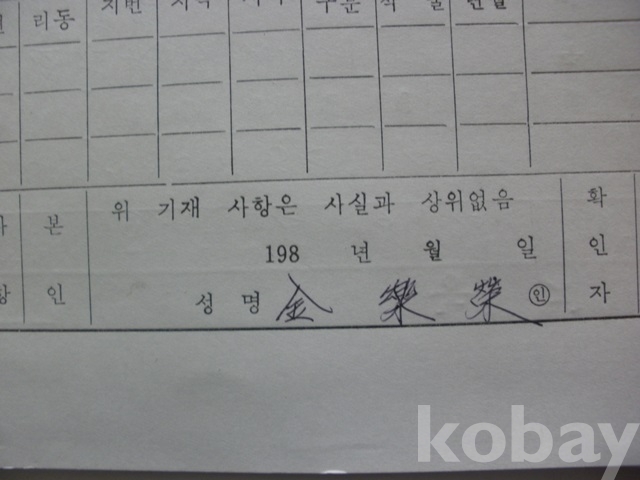 리동 지번 지적 구분 적 필 연월
위 기재 사항은 사실과 상위없음 확
본
198 년 월 일 인
인 성 명 金 樂 榮 ㊞ 자
kobay